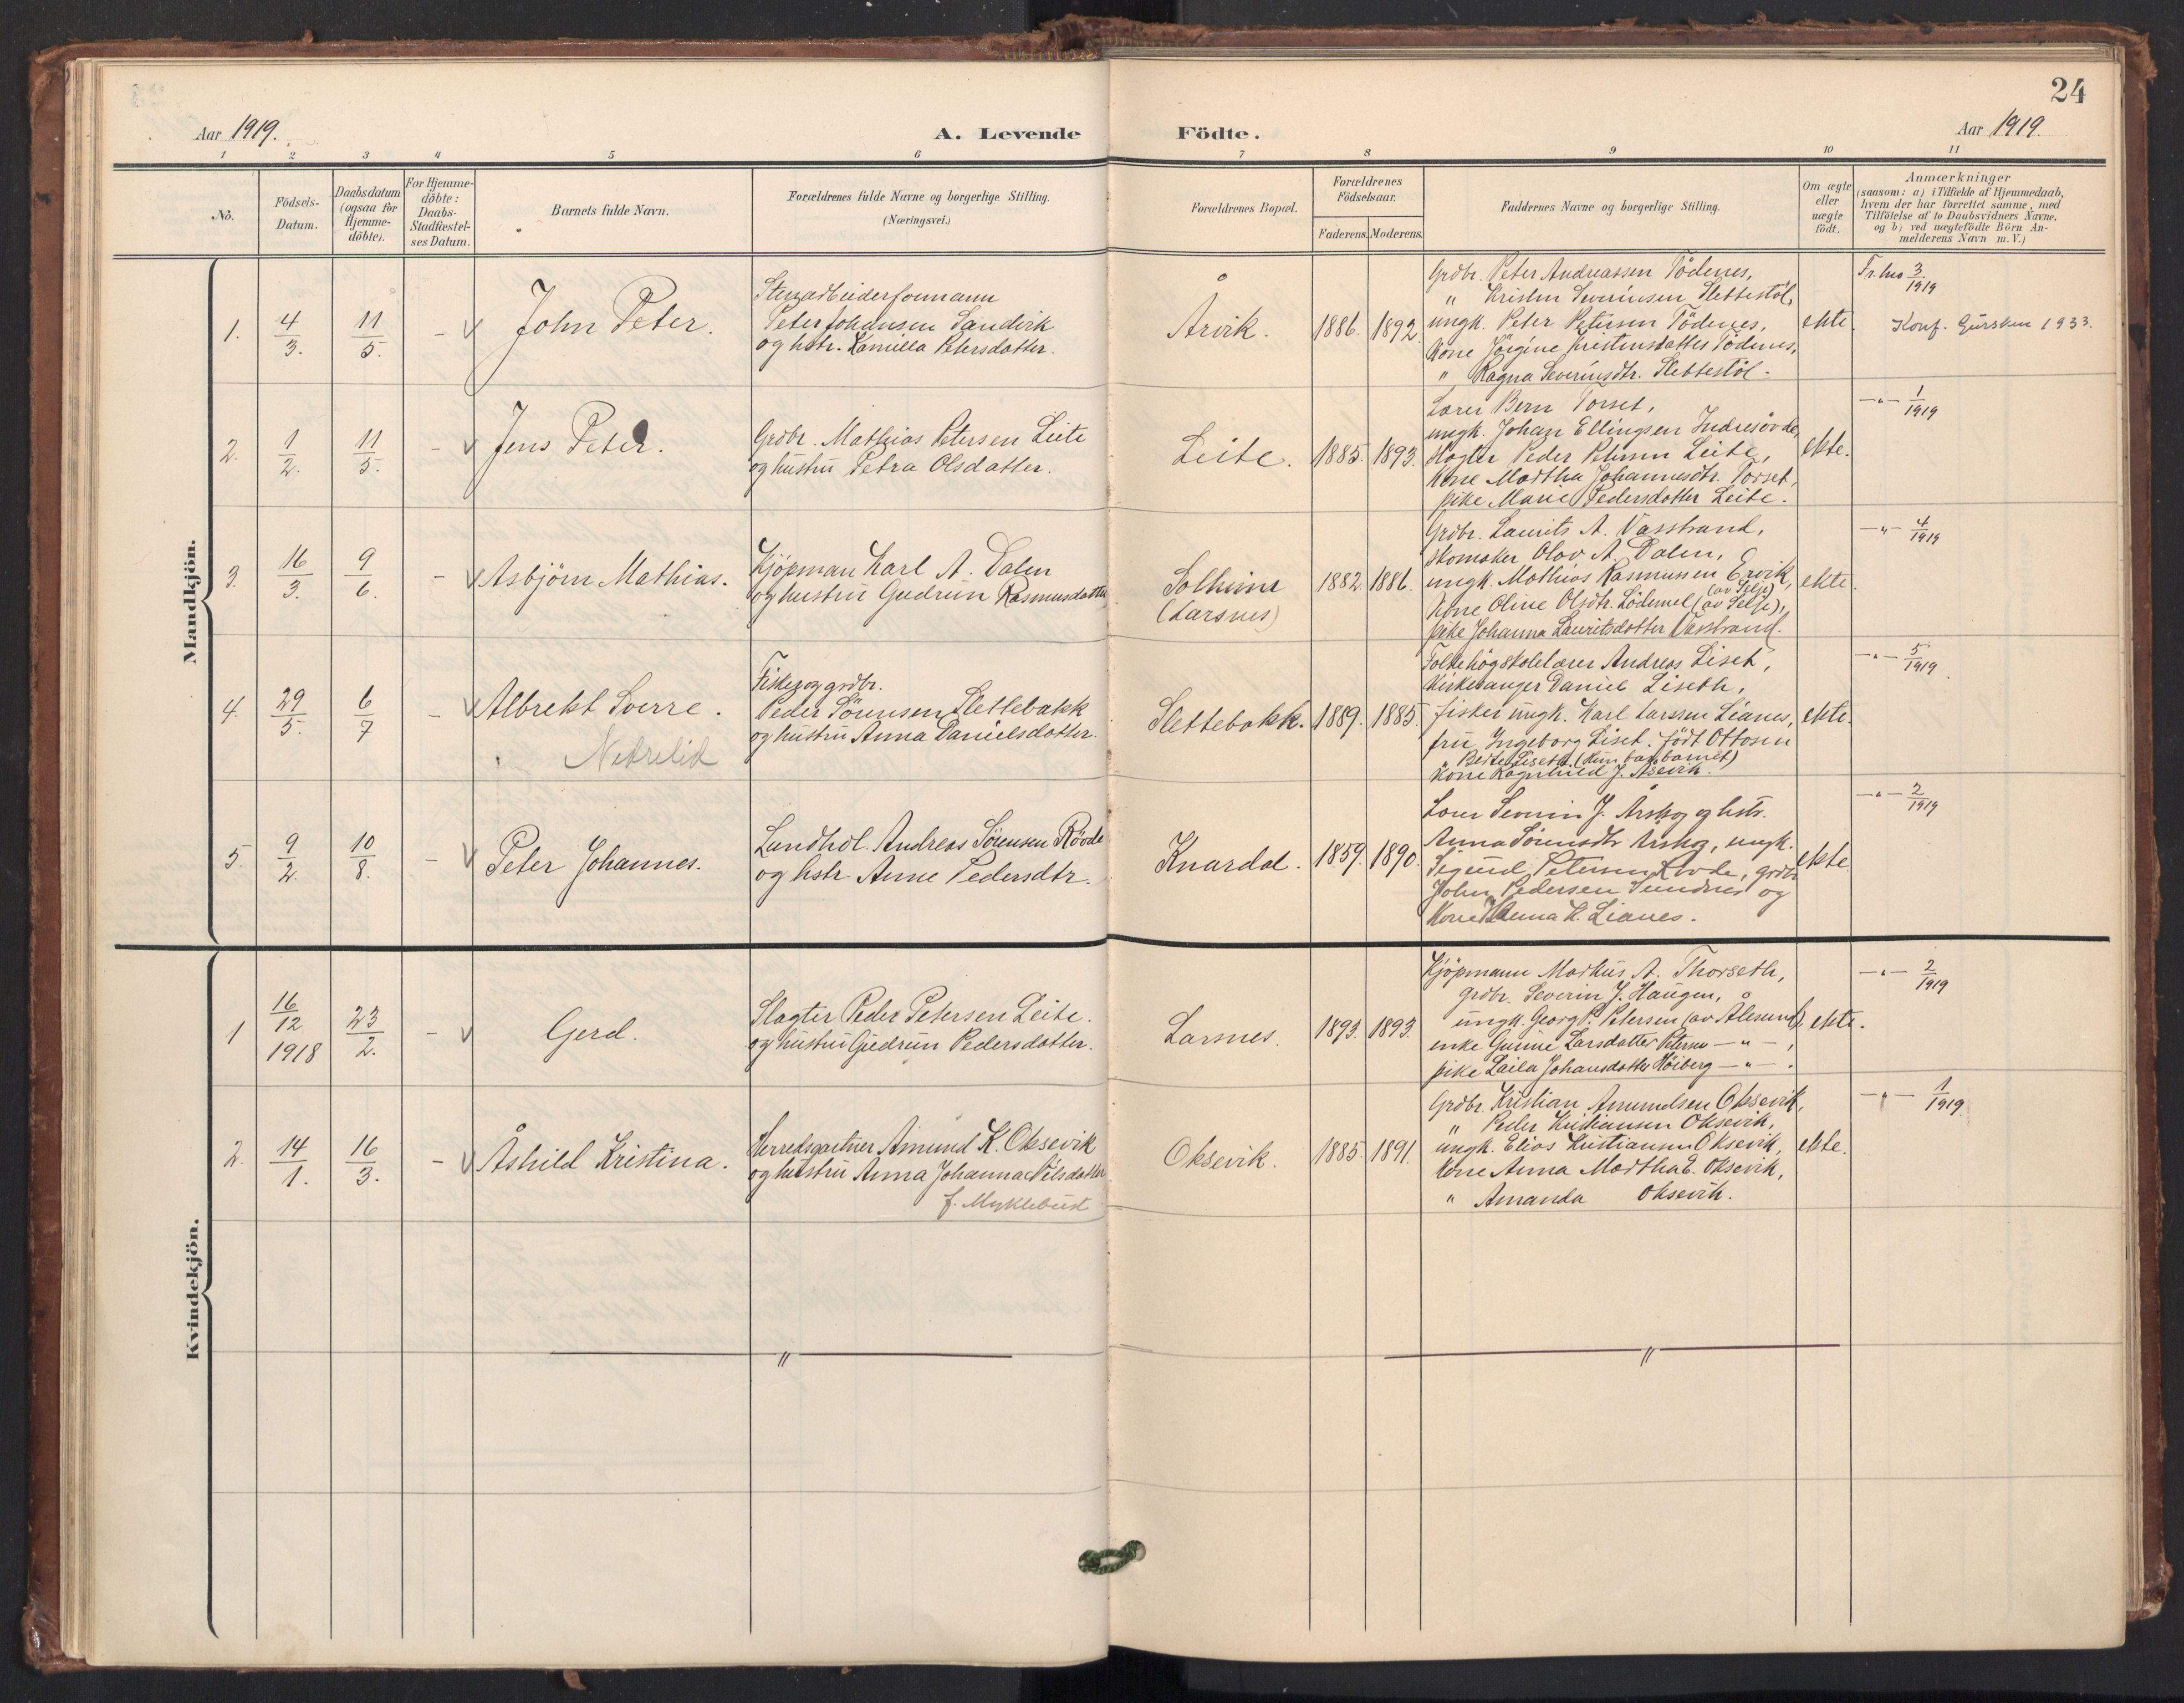 24
Aar 1919.
A. Levende Födte.
Aar 1919.
1 2 3 4 5 6 7 8 9 10 11
No.
Födsels-
Datum.
Daabsdatum
(ogsaa for
Hjemme-
döbte).
For Hjemme-
döbte:
Daabs-
Stadfæstel-
ses Datum.
Barnets fulde Navn.
Forældrenes fulde Navne og borgerlige Stilling.
(Næringsvei.)
Forældrenes Bopæl.
Forældrenes
Födselsaar.
Faderens. Moderens.
Faddernes Navne og borgerlige Stilling.
Om ægte
eller
uægte
födt.
Anmærkninger
(saasom: a) i Tilfælde af Hjemmedaab,
hvem der har forrettet samme, med
Tilföielse af to Daabsvidners Navne,
og b) ved uægtefödte Börn An-
melderens Navn m. V.)
Mandkjön.
1.
4/3.
11/5.
–
John Peter.
Stenarbeiderformann
Peter Johansen Sandvik
og hstr. Kamilla Petersdatter.
Årvik.
1886. 1892.
Grdbr. Peter Andreassen Tödenes,
" Kristen Severinsen Slettestöl,
ungk. Peter Petersen Tödenes,
Kone Jörgine Kristensdatter Tödenes,
" Ragna Severinsdtr. Slettestöl.
ekte.
Tr. lno 3/1919
Konf. Gursken 1933.
2.
1/2.
11/5.
–
Jens Peter.
Grdbr. Mathias Petersen Leite
og hustru Petra Olsdatter.
Leite.
1885. 1893.
Lærer Bern Torset,
ungk. Johan Ellingsen Indresövde,
Slagter Peder Petersen Leite,
Kone Martha Johannesdtr. Torset,
pike Marie Pedersdatter Leite.
ekte.
–"– 1/1919
3.
16/3.
9/6.
–
Asbjörn Mathias.
Kjöpman Karl A. Dalen
og hustru Gudrun Rasmusdatter
Solheim
(Larsnes)
1882. 1886.
Grdbr. Laurits A. Vasstrand,
skomaker Olav A. Dalen,
ungk. Mathias Rasmussen Ervik,
(av Selje)
Kone Oline Olsdtr. Lödemel (av Selje),
pike Johanna Lauritsdatter Vasstrand.
ekte.
–"– 4/1919
4.
29/5.
6/7
–
Albrekt Sverre.
Nedrelid
Fisker og grdbr.
Peder Sörensen Slettebakk
og hustru Anna Danielsdatter.
Slettebakk.
1889. 1885.
Folkehögskolelærer Andreas Liset,
Kirkesanger Daniel Liseth,
fisker ungk. Karl Larssen Lianes,
fru Ingeborg Liset. födt Ottosen
" Berte Liseth (hun bar barnet)
Kone Ragnhild J. Åsevik.
ekte.
–"– 5/1919.
5.
9/2.
10/8.
–
Peter Johannes.
Landhdl. Andreas Sörensen Rövde
og hstr. Anne Pedersdtr.
Knardal.
1859. 1890.
Severin J. Årskog og hstr.
Anna Sörensdtr Årskog, ungk.
Sigurd Petersen Rövde, grdbr
John Pedersen Sundnes og
Kone Anna K. Lianes.
ekte.
–"– 2/1919
Kvindekjön.
1
16/12
1918
23/2.
–
Gerd.
Slagter Peder Petersen Leite.
og hustru Gudrun Pedersdatter.
Larsnes.
1893. 1893.
Kjöpmann Markus A. Thorseth,
grdbr. Severin J. Haugen,
ungk. Georg P. Petersen (av Ålesund),
enke Gurine Larsdatter Petersen –"–,
pike Laila Johansdatter Höiberg –"–.
ekte.
–"– 2/1919
2.
14/1.
16/3.
–
Åshild Kristina.
Herredsgartner Amund K. Oksevik
og hustru Anna Johanna Nilsdatter
f. Myklebust
Oksevik.
1885. 1891.
Grdbr. Kristian Amundsen Oksevik,
" Peder Kristiansen Oksevik,
ungk. Elias Kristiansen Oksevik,
Kone Anna Martha E. Oksevik,
" Amanda Oksevik.
ekte.
–"– 1/1919.
" "